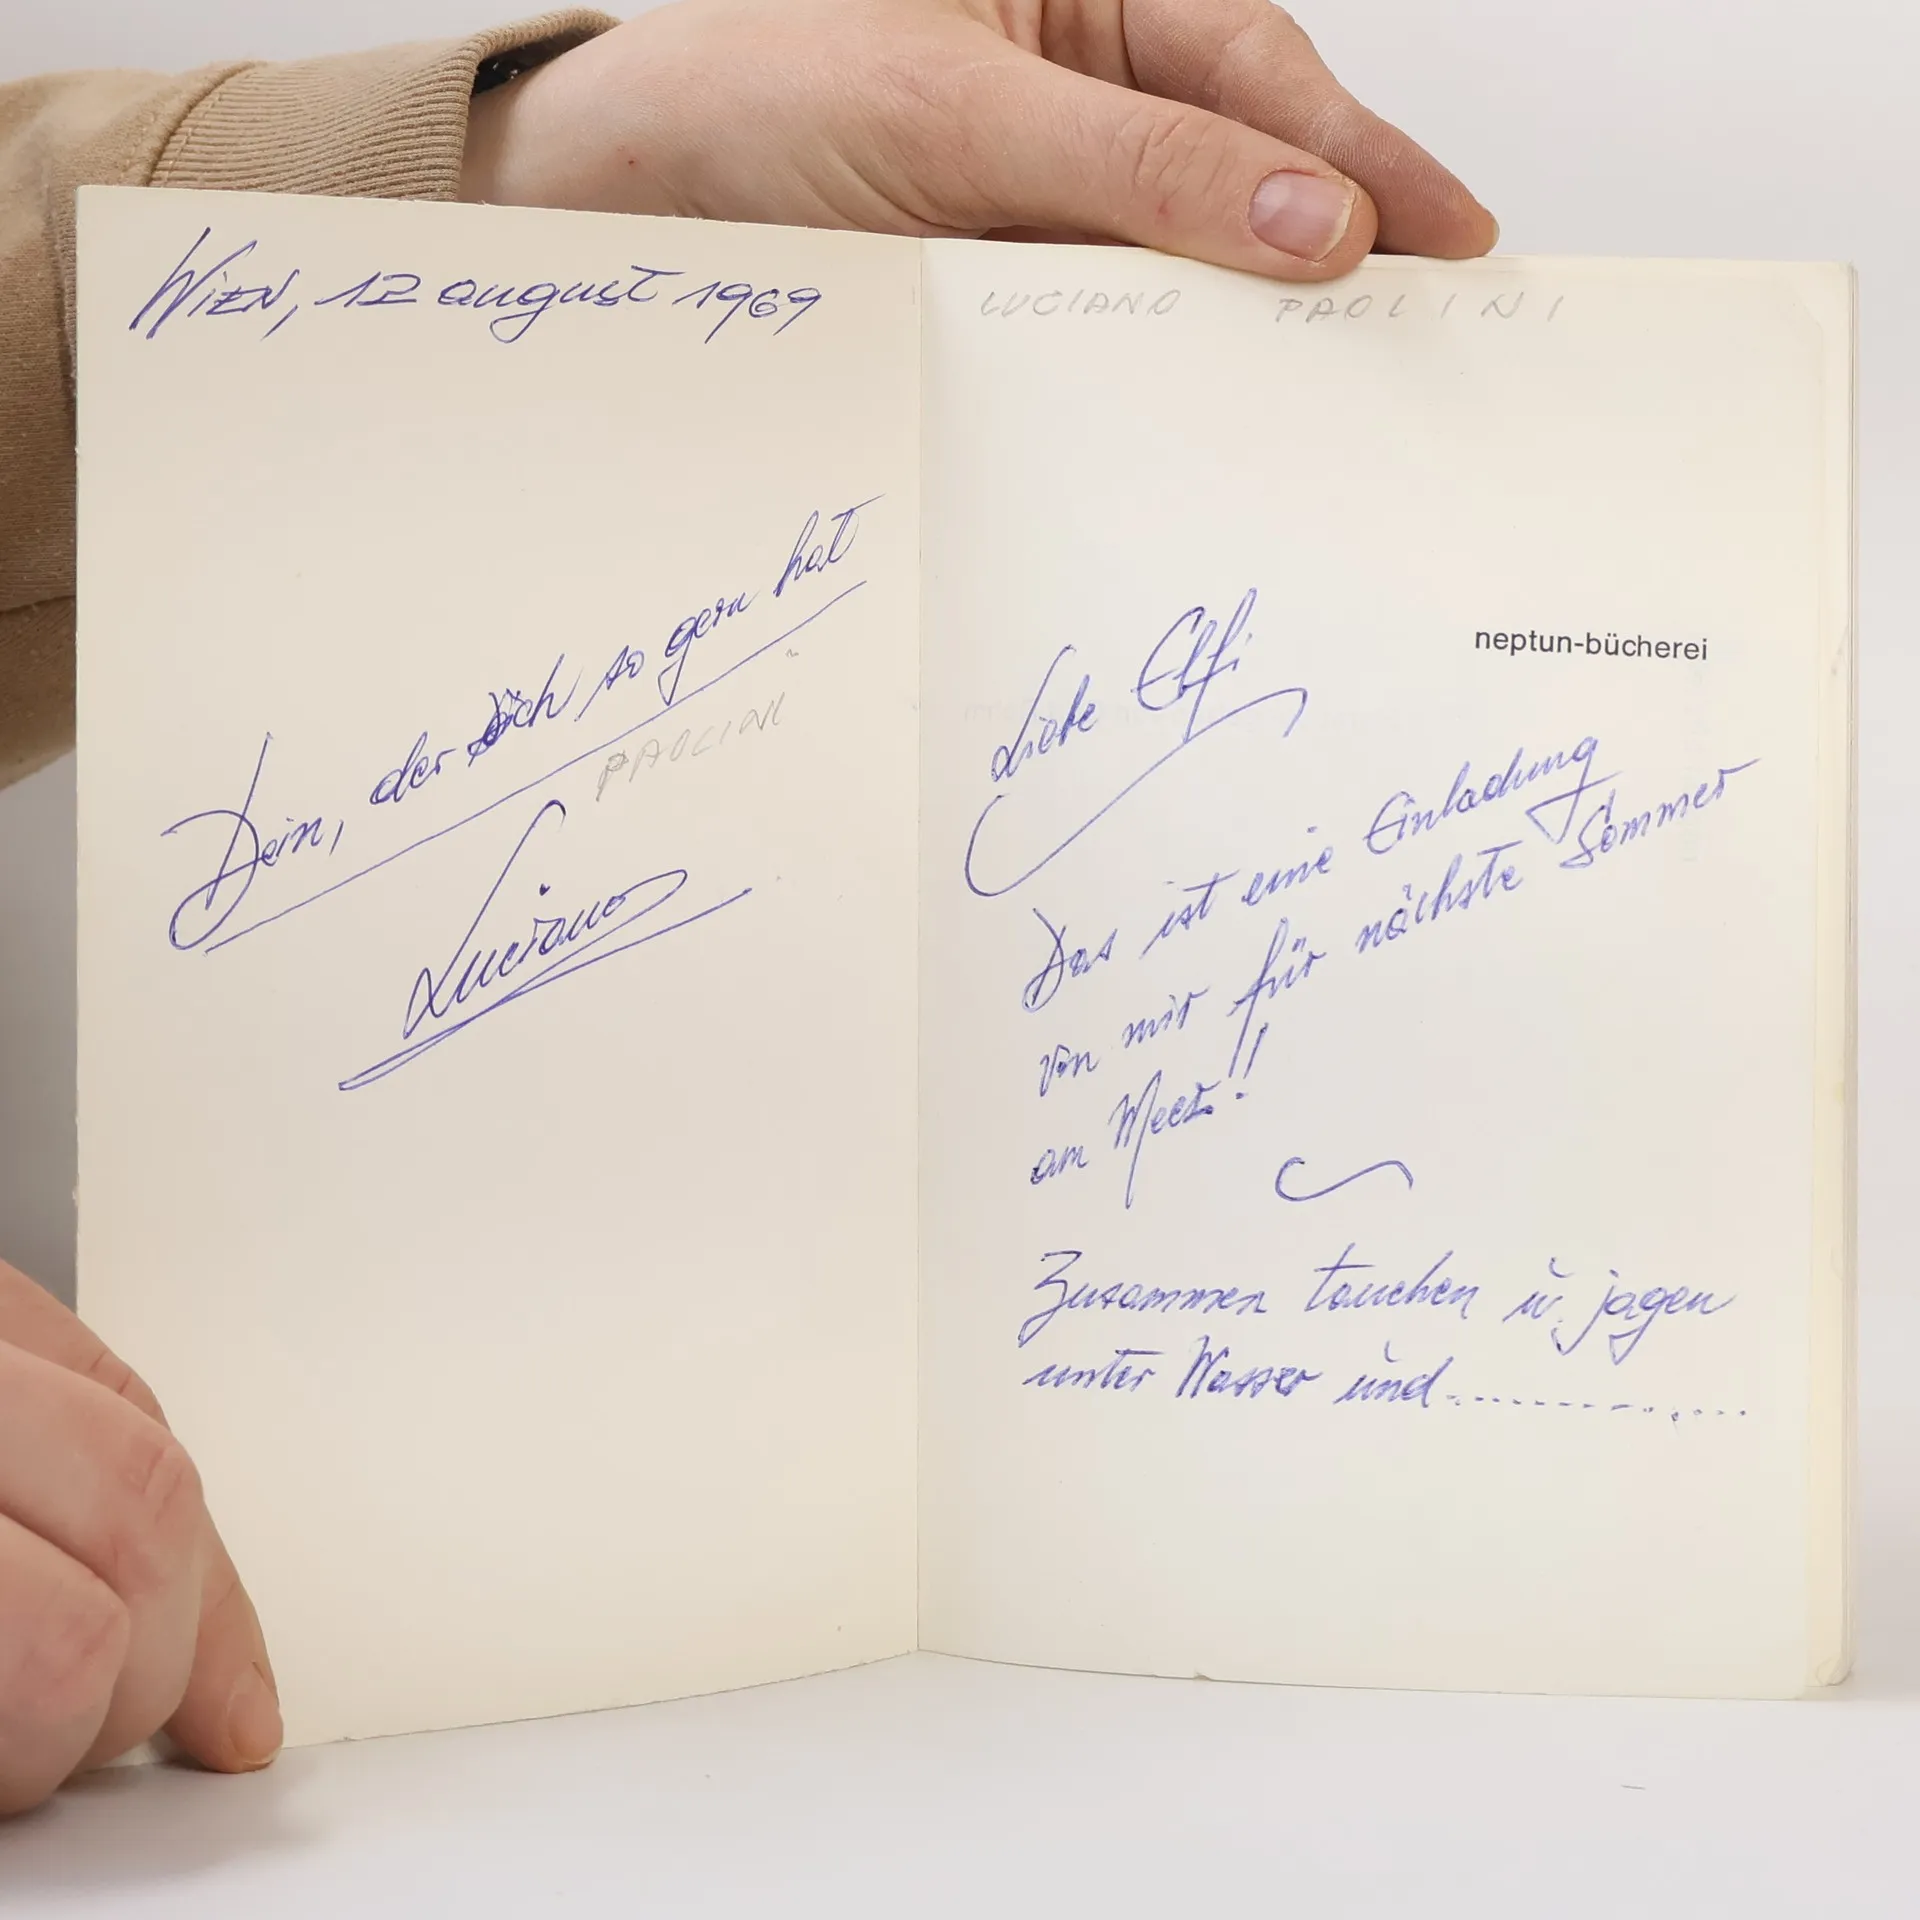 Wien, 12 august 1969
Dein, der dich so gern hat
PAOLINI
Luciano
LUCIANO PAOLINI
neptun-bücherei
Liebe Elfi
Das ist eine Einladung
von mir für nächste Sommer
am Meer!!
Zusammen tauchen u. jagen
unter Wasser und..............